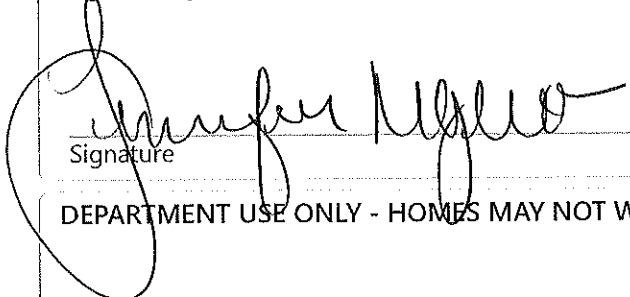 Jennifer
Signature
DEPARTMENT USE ONLY - HOMES MAY NOT W